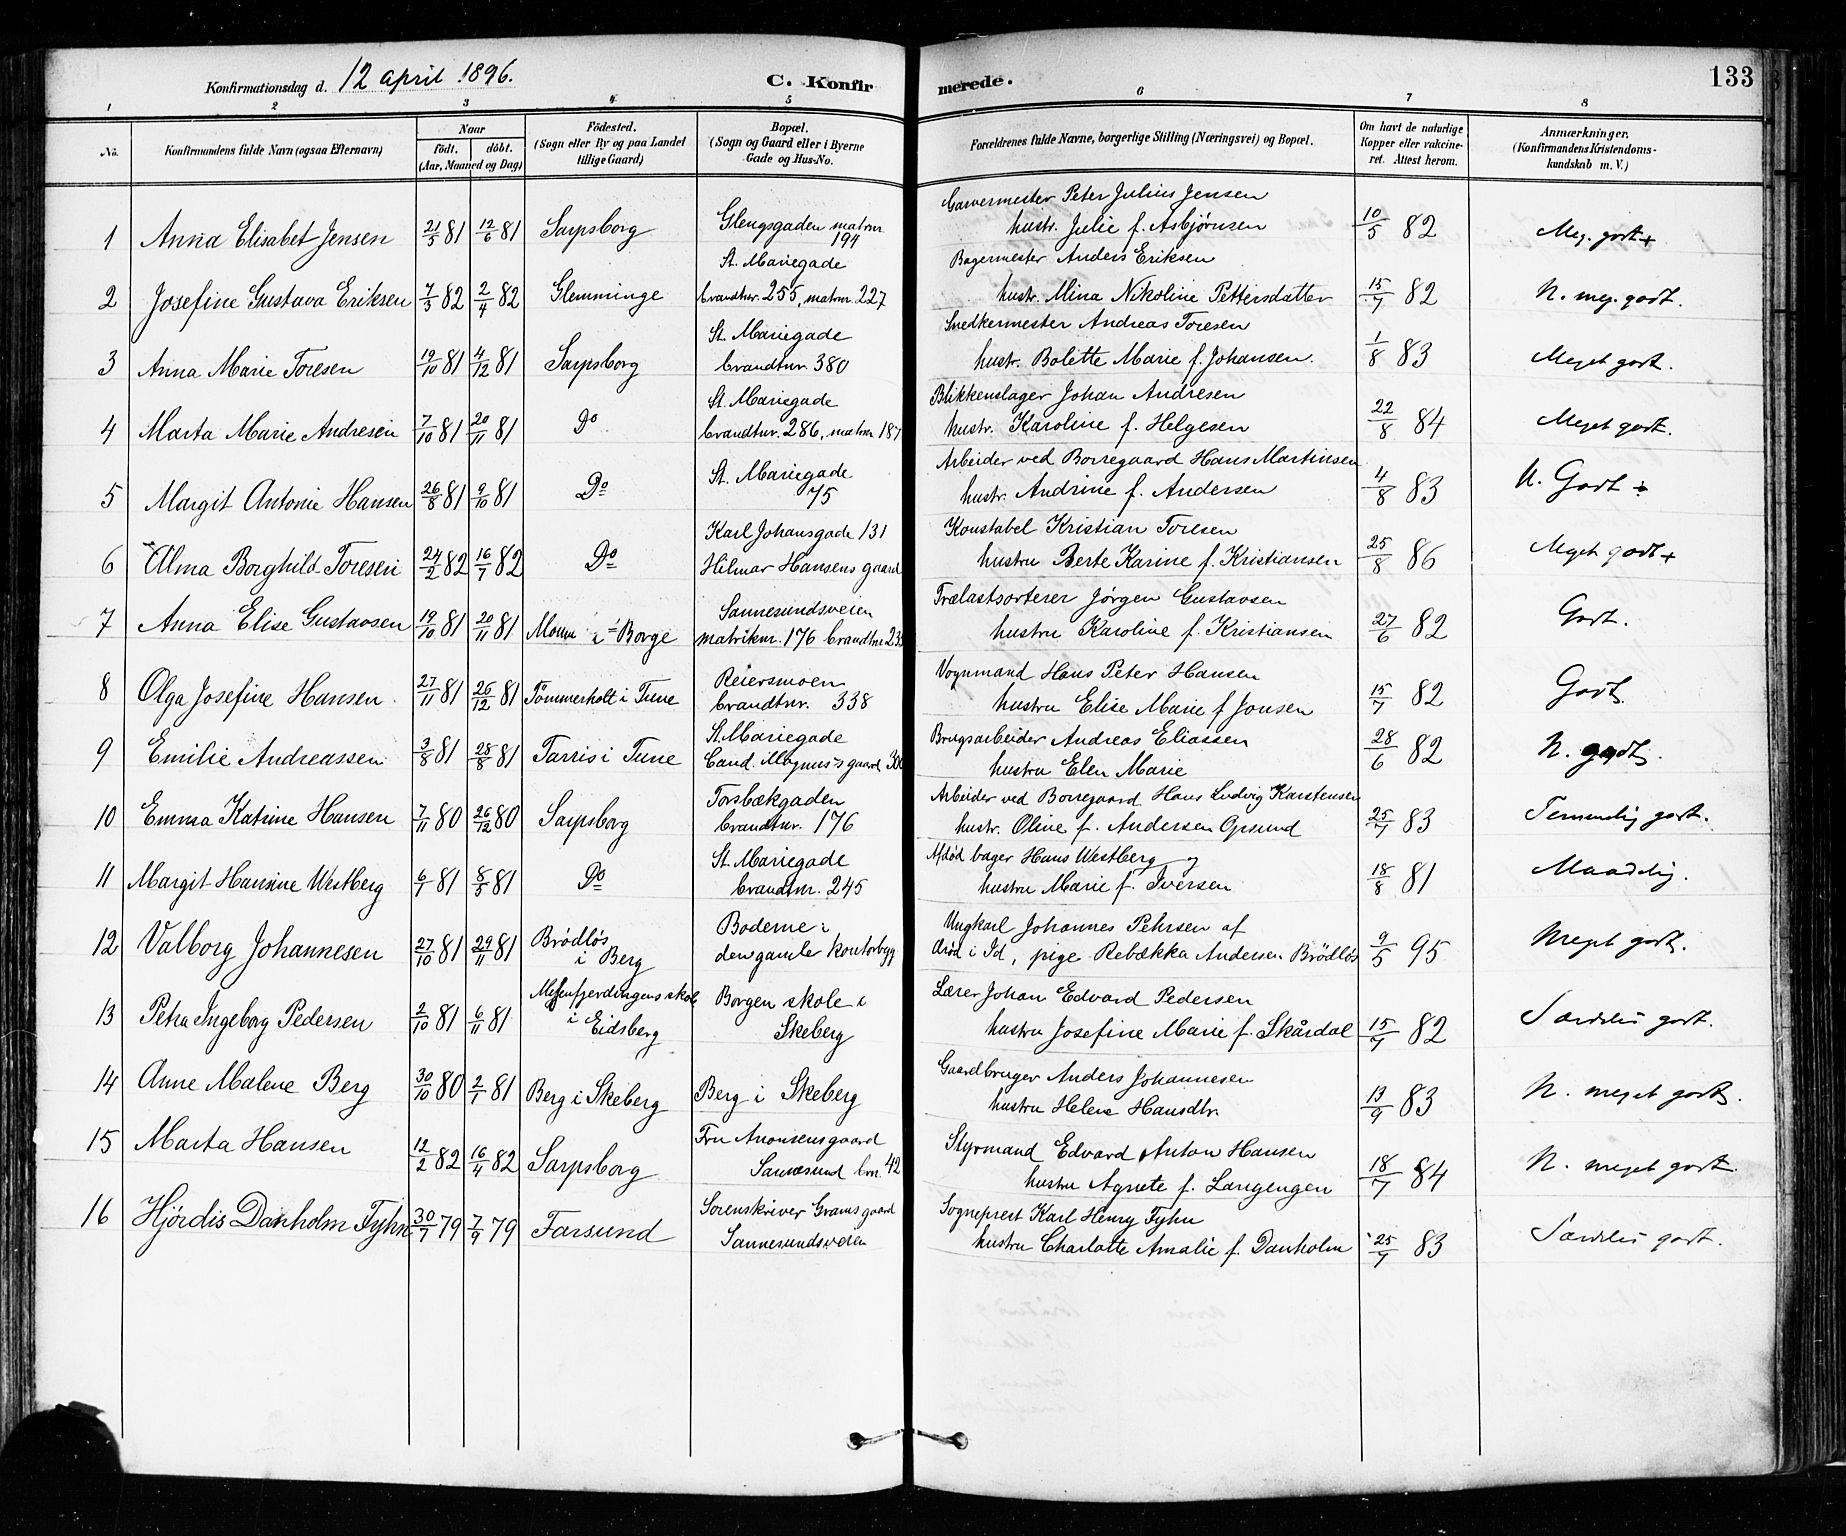 Konfirmationsdag d. 12 april 1896.
C. Konfirmerede.
133
1 2 3 4 5 6 7 8
No.
Konfirmandens fulde Navn (ogsaa Efternavn)
Naar
födt. döbt.
(Aar, Maaned og Dag)
Födested.
(Sogn eller By og paa Landet
tillige Gaard)
Bopæl.
(Sogn og Gaard eller i Byerne
Gade og Hus-No.
Forældrenes fulde Navne, borgerlige Stilling (Næringsvei) og Bopæl.
Om havt de naturlige
Kopper eller vakcine-
ret. Attest herom.
Anmærkninger.
(Konfirmandens Kristendoms-
kundskab m. V.)
1 Anna Elisabet Jensen 21/5 81 12/6 81 Sarpsborg
Glengsgaden matrnr
194
Garvermester Peter Julius Jensen
hustr. Julie f. Asbjørnsen
10/5 82 Meg. godt +
2 Josefine Gustava Eriksen 7/3 82 2/4 82 Glemminge
St. Mariegade
brandtnr. 255, matrnr. 227
Bagermester Anders Eriksen
hustr. Mina Nikoline Pettersdatter
15/7 82 N. meg. godt.
3 Anna Marie Toresen 19/10 81 4/12 81 Sarpsborg
St. Mariegade
brandtnr. 380
Snedkermester Andreas Toresen
hustr. Bolette Marie f. Johansen.
1/8 83 Meget godt.
4 Marta Marie Andresen 7/10 81 20/11 81 Do
St. Mariegade
brandtnr. 286, matrnr 187
Blikkenslager Johan Andresen
hustr. Karoline f. Helgesen
22/8 84 Meget godt.
5 Margit Antonie Hansen 26/8 81 9/10 81 Do
St. Mariegade
75
Arbeider ved Borregaard Hans Martinsen
hustr. Andrine f. Andersen
4/8 83 N. Godt +
6 Alma Borghild Toresen 24/2 82 16/7 82 Do
Karl Johansgade 131
Hilmar Hansens gaard
Konstabel Kristian Toresen
hustru Berte Karine f. Kristiansen
25/8 86 Meget godt +
7 Anna Elise Gustavsen 19/10 81 20/11 81 Moum i Borge
Sannesundsveien
matriknr. 176 brandtnr 23
Trælastsorterer Jørgen Gustavsen
hustru Karoline f. Kristiansen
27/6 82 Godt.
8 Olga Josefine Hansen. 27/11 81 26/12 81 Tömmerholt i Tune
Reiersmoen
brandtnr. 338
Vognmand Hans Peter Hansen
hustru Elise Marie f Jonsen
15/7 82 Godt.
9 Emilie Andreassen 3/8 81 28/8 81 Tarris i Tune
St. Mariegade
Cand. Magnus's gaard 300
Brugsarbeider Andreas Eliassen
hustru Elen Marie
28/6 82 N. godt.
10 Emma Katrine Hansen 7/11 80 26/12 80 Sarpsborg
Torsbækgaden
brandtnr. 176
Arbeider ved Borregaard Hans Ludvig Karstensen
hustr. Oline f. Andersen Opsund
25/7 83 Temmelig godt.
11 Margit Hansine Westberg 6/1 81 8/5 81 Do
St. Mariegade
brandtnr. 245
Afdöd bager Hans Westberg og
hustru Marie f. Iversen
18/8 81 Maadelig.
12 Valborg Johannesen 27/10 81 29/11 81
Brödlös
i Berg
Boderne i
den gamle kontorbygg
Ungkarl Johannes Petersen af
i Id, pige Rebækka Andersen Brödlös
9/5 95 Meget godt.
13 Petra Ingeborg Pedersen 2/10 81 6/11 81
i Eidsberg
Borgen skole i
Skeberg
Lærer Johan Edvard Pedersen
hustru Josefine Marie f. Skårdal
15/7 82 Særdeles godt.
14 Anne Malene Berg 30/10 80 2/1 81 Berg i Skeberg
Berg i Skeberg
Gaardbruger Anders Johannesen
hustru Helene Hansdtr.
13/9 83 N. meget godt.
15 Marta Hansen 12/2 82 16/4 82 Sarpsborg
Fru Anonsens gaard
Sannesund bnr. 42
Styrmand Edvard Anton Hansen
hustru Agnete f. Langengen
18/7 84 N. meget godt.
16 Hjördis Danholm Fyhn 30/7 79 7/9 79 Farsund
Sorenskriver Grams gaard
Sannesundsveien
Sogneprest Karl Henry Fyhn
hustru Charlotte Amalie f. Danholm
25/7 83 Særdeles godt.